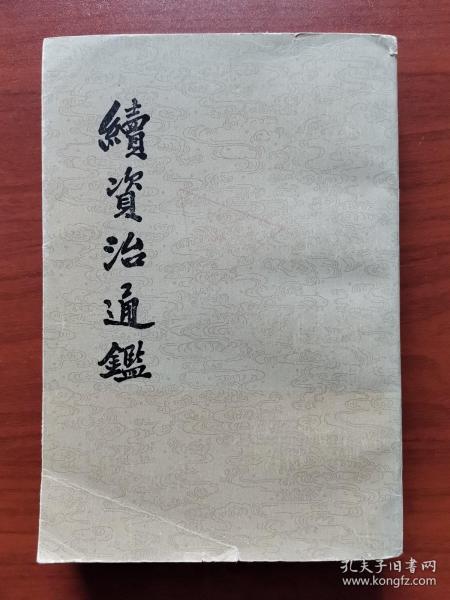 續資治通鑑
孔夫子旧书网
www.kongfz.com